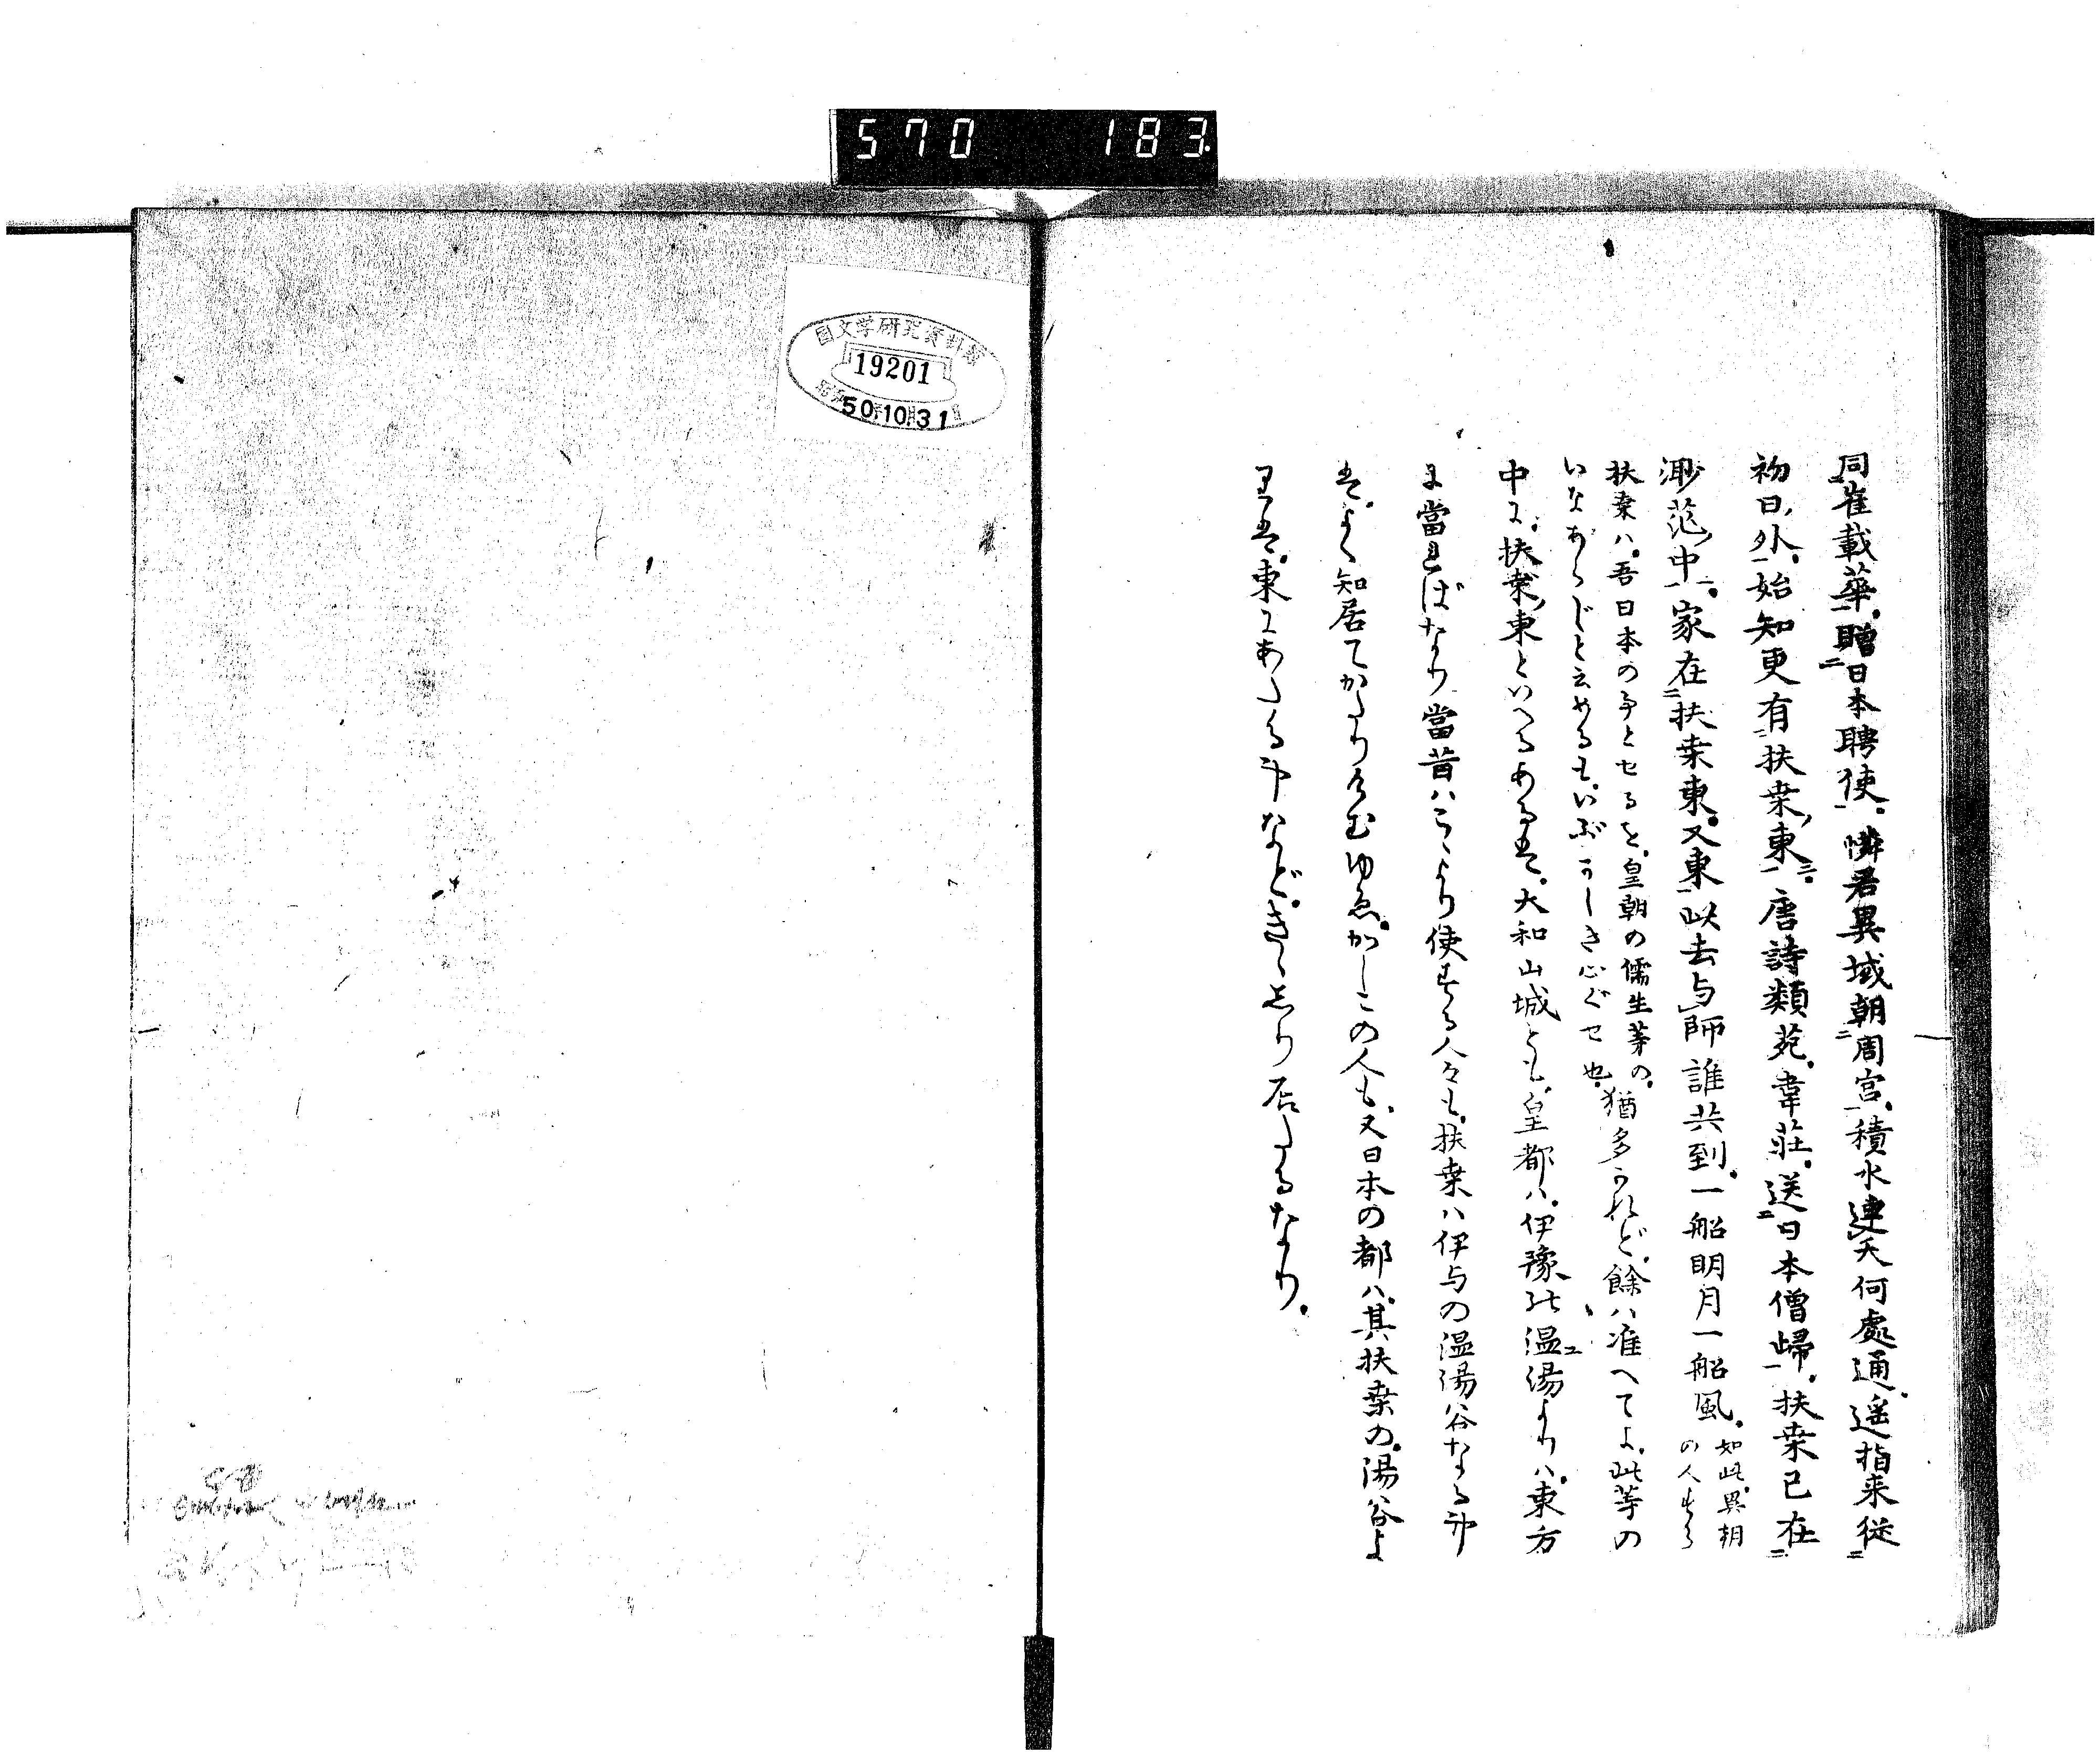 同崔載華贈日本聘使憐君異域朝周宮積水連天何處通遥指来從
初日外始知更有扶桒東唐詩類苑韋荘送日本僧歸扶桒已在
渺茫中家在扶桒東又東此去与師誰共到一船明月一船風如此異朝
の人すら
扶桒ハ吾日本の事とせるを皇朝の儒生等の
いなあらじと云めるもいぶかしき心ぐせ也
猶多かれど餘ハ准へてよ此等の
中に扶桒東といへるあるは大和山城とも皇都ハ伊豫の温湯よりハ東方
に當ればなり當昔ハこゝより使する人々も扶桒ハ伊与の温湯谷なる事
はよく知居てかたりけむゆゑかしこの人も又日本の都ハ其扶桒の湯谷よ
りは東にあたる事などきゝしり居たるなり
570 183
国文学研究資料館
19201
50.10.31